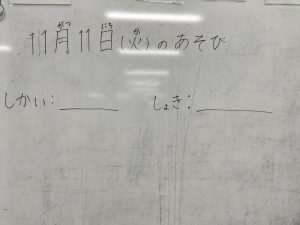 11月11日(火)のあそび
しかい:______ しょき:______